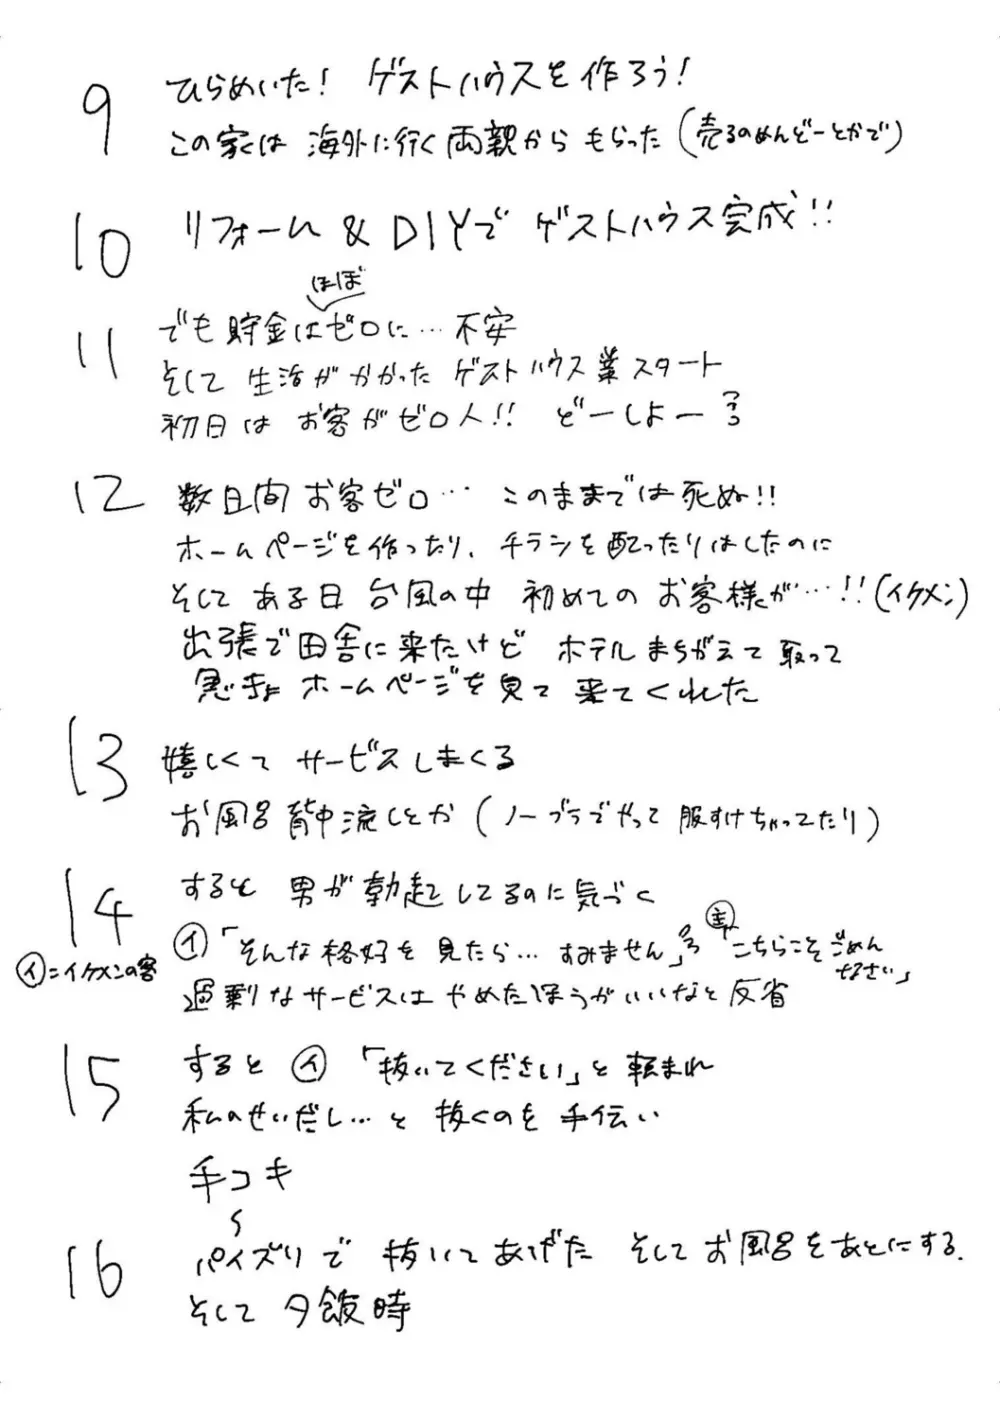 9 ひらめいた! ゲストハウスを作ろう!
この家は 海外に行く両親から もらった (売るのめんどーとかで)
10 リフォーム & DIYで ゲストハウス完成!!
ほぼ
11 でも貯金はゼロに… 不安
そして 生活がかかった ゲストハウス業スタート
初日は お客がゼロ人!! どーしよー??
12 数日間 お客ゼロ… このままでは死ぬ!!
ホームページを作ったり、チラシを配ったりはしたのに
そして ある日 台風の中 初めての お客様が…!! (イケメン)
出張で田舎に来たけど ホテルまちがえて取って
急きょ ホームページを見て 来てくれた
13 嬉しくて サービスしまくる
お風呂 背中流しとか (ノーブラでやって 服すけちゃってたり)
14 すると 男が勃起してるのに気づく
イ「そんな格好を見たら… すみません」 主「こちらこそごめん
なさい」
イ=イケメンの客
過剰なサービスは やめたほうがいいなと 反省
15 すると イ 「抜いてください」と 頼まれ
私のせいだし…と 抜くのを 手伝い
手コキ
16 パイズリで 抜いてあげた そしてお風呂をあとにする.
そして 夕飯時